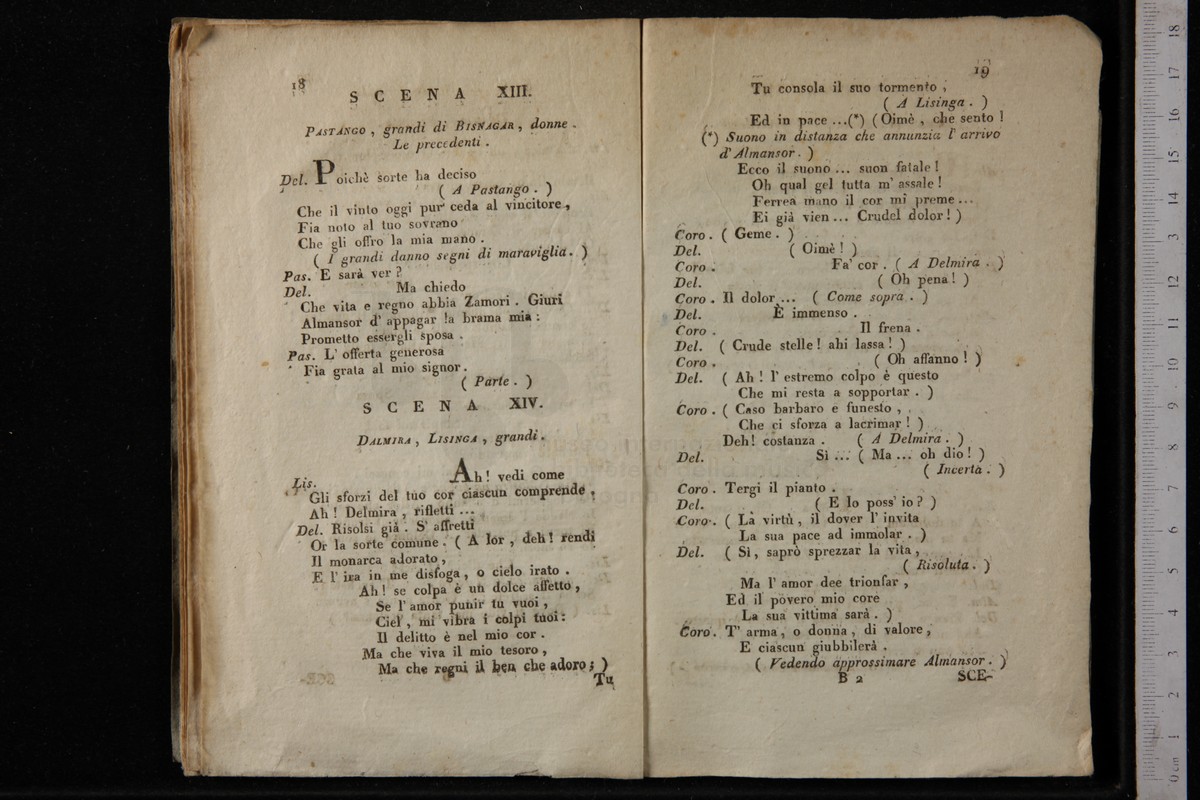 18
SCENA XIII.
PASTANGO, grandi di BISNAGAR, donne.
Le precedenti.
Del. Poichè sorte ha deciso
( A Pastango. )
Che il vinto oggi pur ceda al vincitore,
Fia noto al tuo sovrano
Che gli offro la mia mano.
( I grandi danno segni di maraviglia. )
Pas. E sarà ver?
Del. Ma chiedo
Che vita e regno abbia Zamori. Giuri
Almansor d' appagar la brama mia:
Prometto essergli sposa.
Pas. L' offerta generosa
Fia grata al mio signor.
( Parte. )
SCENA XIV.
DALMIRA, LISINGA, grandi.
Lis. Ah! vedi come
Gli sforzi del tuo cor ciascun comprende,
Ah! Delmira, rifletti ...
Del. Risolsi già. S' affretti
Or la sorte comune. ( A lor, deh! rendi
Il monarca adorato,
E l' ira in me disfoga, o cielo irato.
Ah! se colpa è un dolce affetto,
Se l' amor punir tu vuoi,
Ciel, mi vibra i colpi tuoi:
Il delitto è nel mio cor.
Ma che viva il mio tesoro,
Ma che regni il ben che adoro; )
Tu
19
Tu consola il suo tormento,
( A Lisinga. )
Ed in pace ...(*) ( Oimè, che sento!
(*) Suono in distanza che annunzia l' arrivo
d' Almansor. )
Ecco il suono ... suon fatale!
Oh qual gel tutta m' assale!
Ferrea mano il cor mi preme ...
Ei già vien ... Crudel dolor! )
Coro. ( Geme. )
Del. ( Oimè! )
Coro. Fa' cor. ( A Delmira. )
Del. ( Oh pena! )
Coro. Il dolor ... ( Come sopra. )
Del. È immenso.
Coro. Il frena.
Del. ( Crude stelle! ahi lassa! )
Coro. ( Oh affanno! )
Del. ( Ah! l' estremo colpo è questo
Che mi resta a sopportar. )
Coro. ( Caso barbaro e funesto,
Che ci sforza a lacrimar! )
Deh! costanza. ( A Delmira. )
Del. Sì ... ( Ma ... oh dio! )
( Incerta. )
Coro. Tergi il pianto.
Del. ( E lo poss' io? )
Coro. ( La virtù, il dover l' invita
La sua pace ad immolar. )
Del. ( Sì, saprò sprezzar la vita,
( Risoluta. )
Ma l' amor dee trionfar,
Ed il povero mio core
La sua vittima sarà. )
Coro. T' arma, o donna, di valore,
E ciascun giubbilerà.
( Vedendo approssimare Almansor. )
B 2 SCE-
0 cm 1 2 3 4 5 6 7 8 9 10 11 12 13 14 15 16 17 18